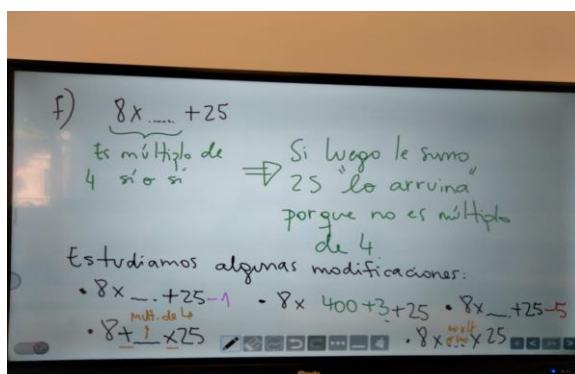 f) 8x ...... +25
Es múltiplo de
4 sí o sí
⇒ Si luego le sumo
25 "lo arruina"
porque no es múltiplo
de 4
Estudiamos algunas modificaciones:
• 8x __ +25-1 • 8x 400+3+25 • 8x __ +25-5
mult. de 4
• 8+__x25 • 8x...x25